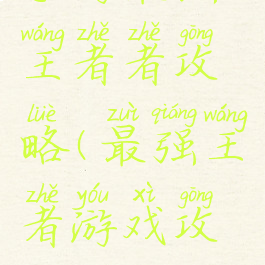 wáng zhě zhě gōng
王者者攻
lüè zuì qiáng wáng
略(最强王
zhě yóu xì gōng
者游戏攻